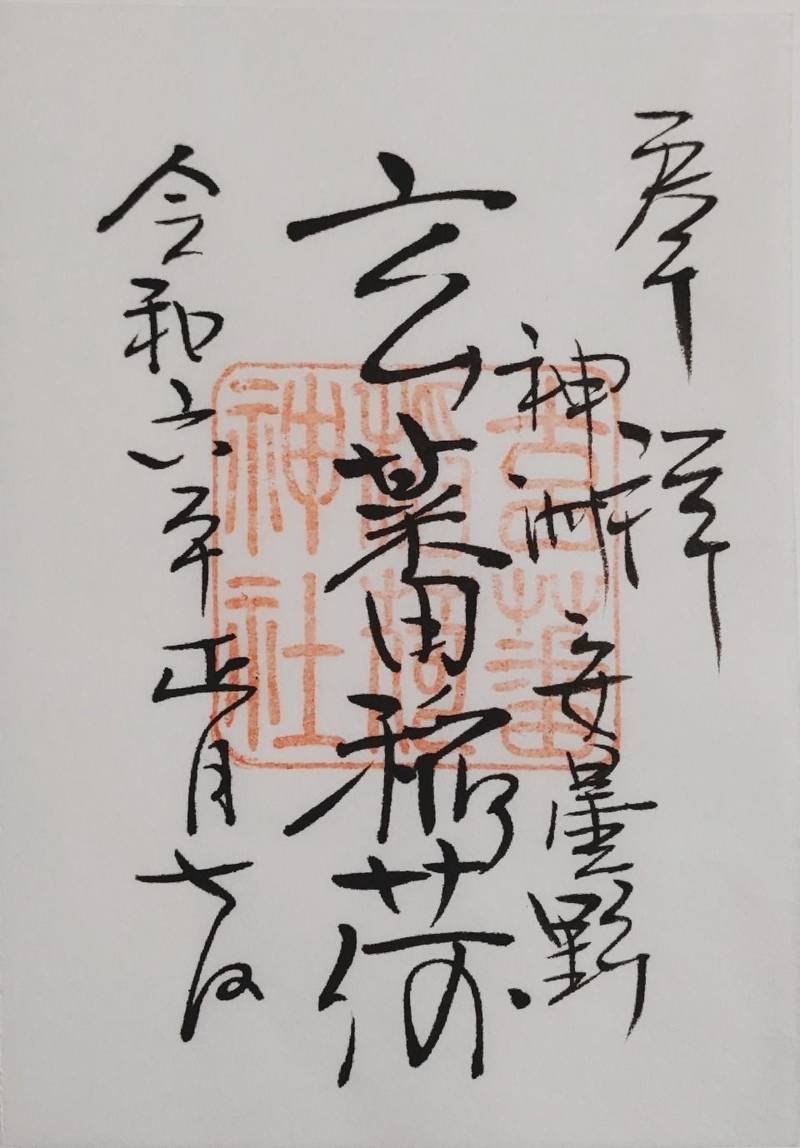 奉拝
神洲 安曇野
玄蕃稲荷
令和六年正月七日
玄蕃
稲荷
神社